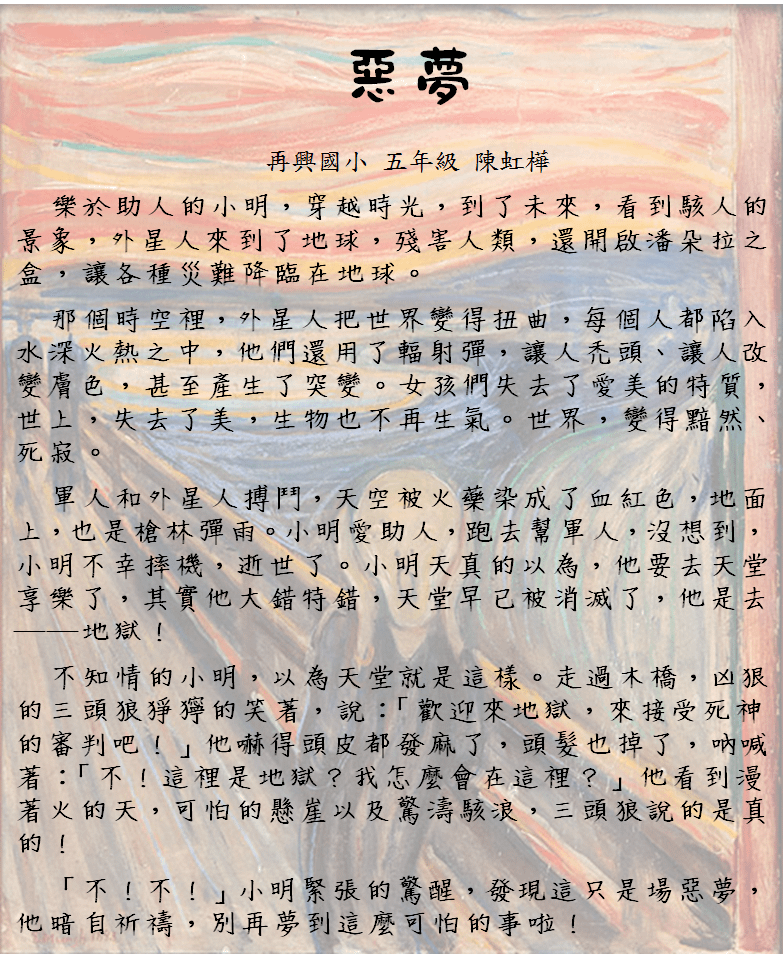 惡夢
再興國小 五年級 陳虹樺
樂於助人的小明，穿越時光，到了未來，看到駭人的
景象，外星人來到了地球，殘害人類，還開啟潘朵拉之
盒，讓各種災難降臨在地球。
那個時空裡，外星人把世界變得扭曲，每個人都陷入
水深火熱之中，他們還用了輻射彈，讓人禿頭、讓人改
變膚色，甚至產生了突變。女孩們失去了愛美的特質，
世上，失去了美，生物也不再生氣。世界，變得黯然、
死寂。
軍人和外星人搏鬥，天空被火藥染成了血紅色，地面
上，也是槍林彈雨。小明愛助人，跑去幫軍人，沒想到，
小明不幸摔機，逝世了。小明天真的以為，他要去天堂
享樂了，其實他大錯特錯，天堂早已被消滅了，他是去
——地獄！
不知情的小明，以為天堂就是這樣。走過木橋，凶狠
的三頭狼猙獰的笑著，說：「歡迎來地獄，來接受死神
的審判吧！」他嚇得頭皮都發麻了，頭髮也掉了，吶喊
著：「不！這裡是地獄？我怎麼會在這裡？」他看到漫
著火的天，可怕的懸崖以及驚濤駭浪，三頭狼說的是真
的！
「不！不！」小明緊張的驚醒，發現這只是場惡夢，
他暗自祈禱，別再夢到這麼可怕的事啦！